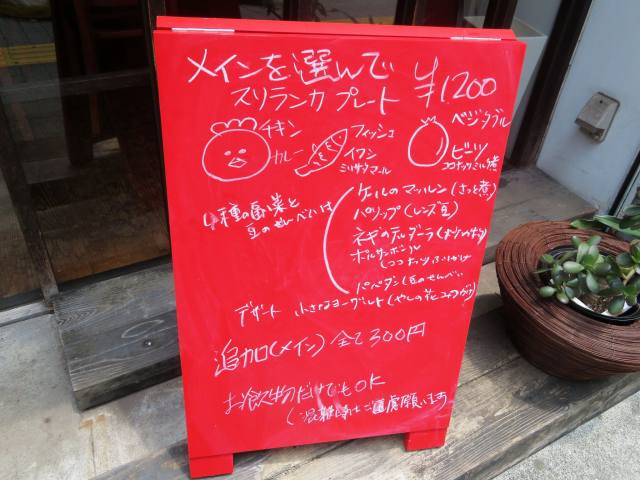 メインを選んで
スリランカプレート ¥1,200
チキン
カレー
フィッシュ
イワシ
ミリサマール
ベジタブル
ビーツ
ココナッツミルク煮
4種の副菜と
豆のせんべいは
ケールのマッルン(さっと煮)
パリップ(レンズ豆)
ネギのテルダーラ
ポルサンボル
ココナッツふりかけ
パパダン(豆のせんべい
デザート 小さなヨーグルト(やしの花
追加(メイン)全て300円
お飲物だけでもOK
(混雑時はご遠慮願います